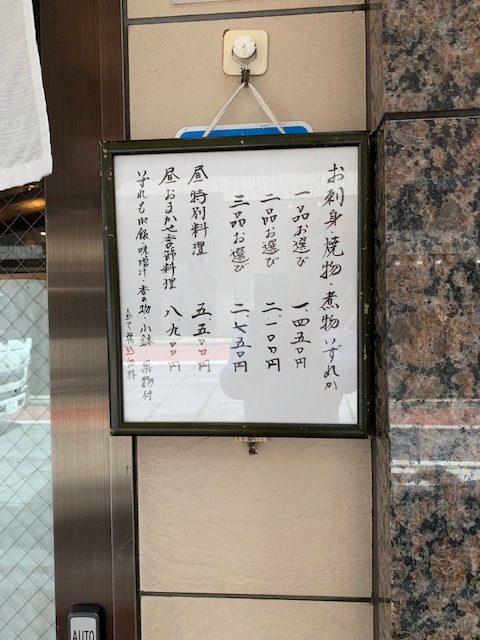 お刺身・焼物・煮物いずれか
一品お選び 一、四五〇円
二品お選び 二、一〇〇円
三品お選び 二、七五〇円
昼特別料理 五、五〇〇円
昼おまかせ季節料理 八、九〇〇円
いずれも御飯・味噌汁・香の物・小鉢・果物付
全て税込価格
AUTO